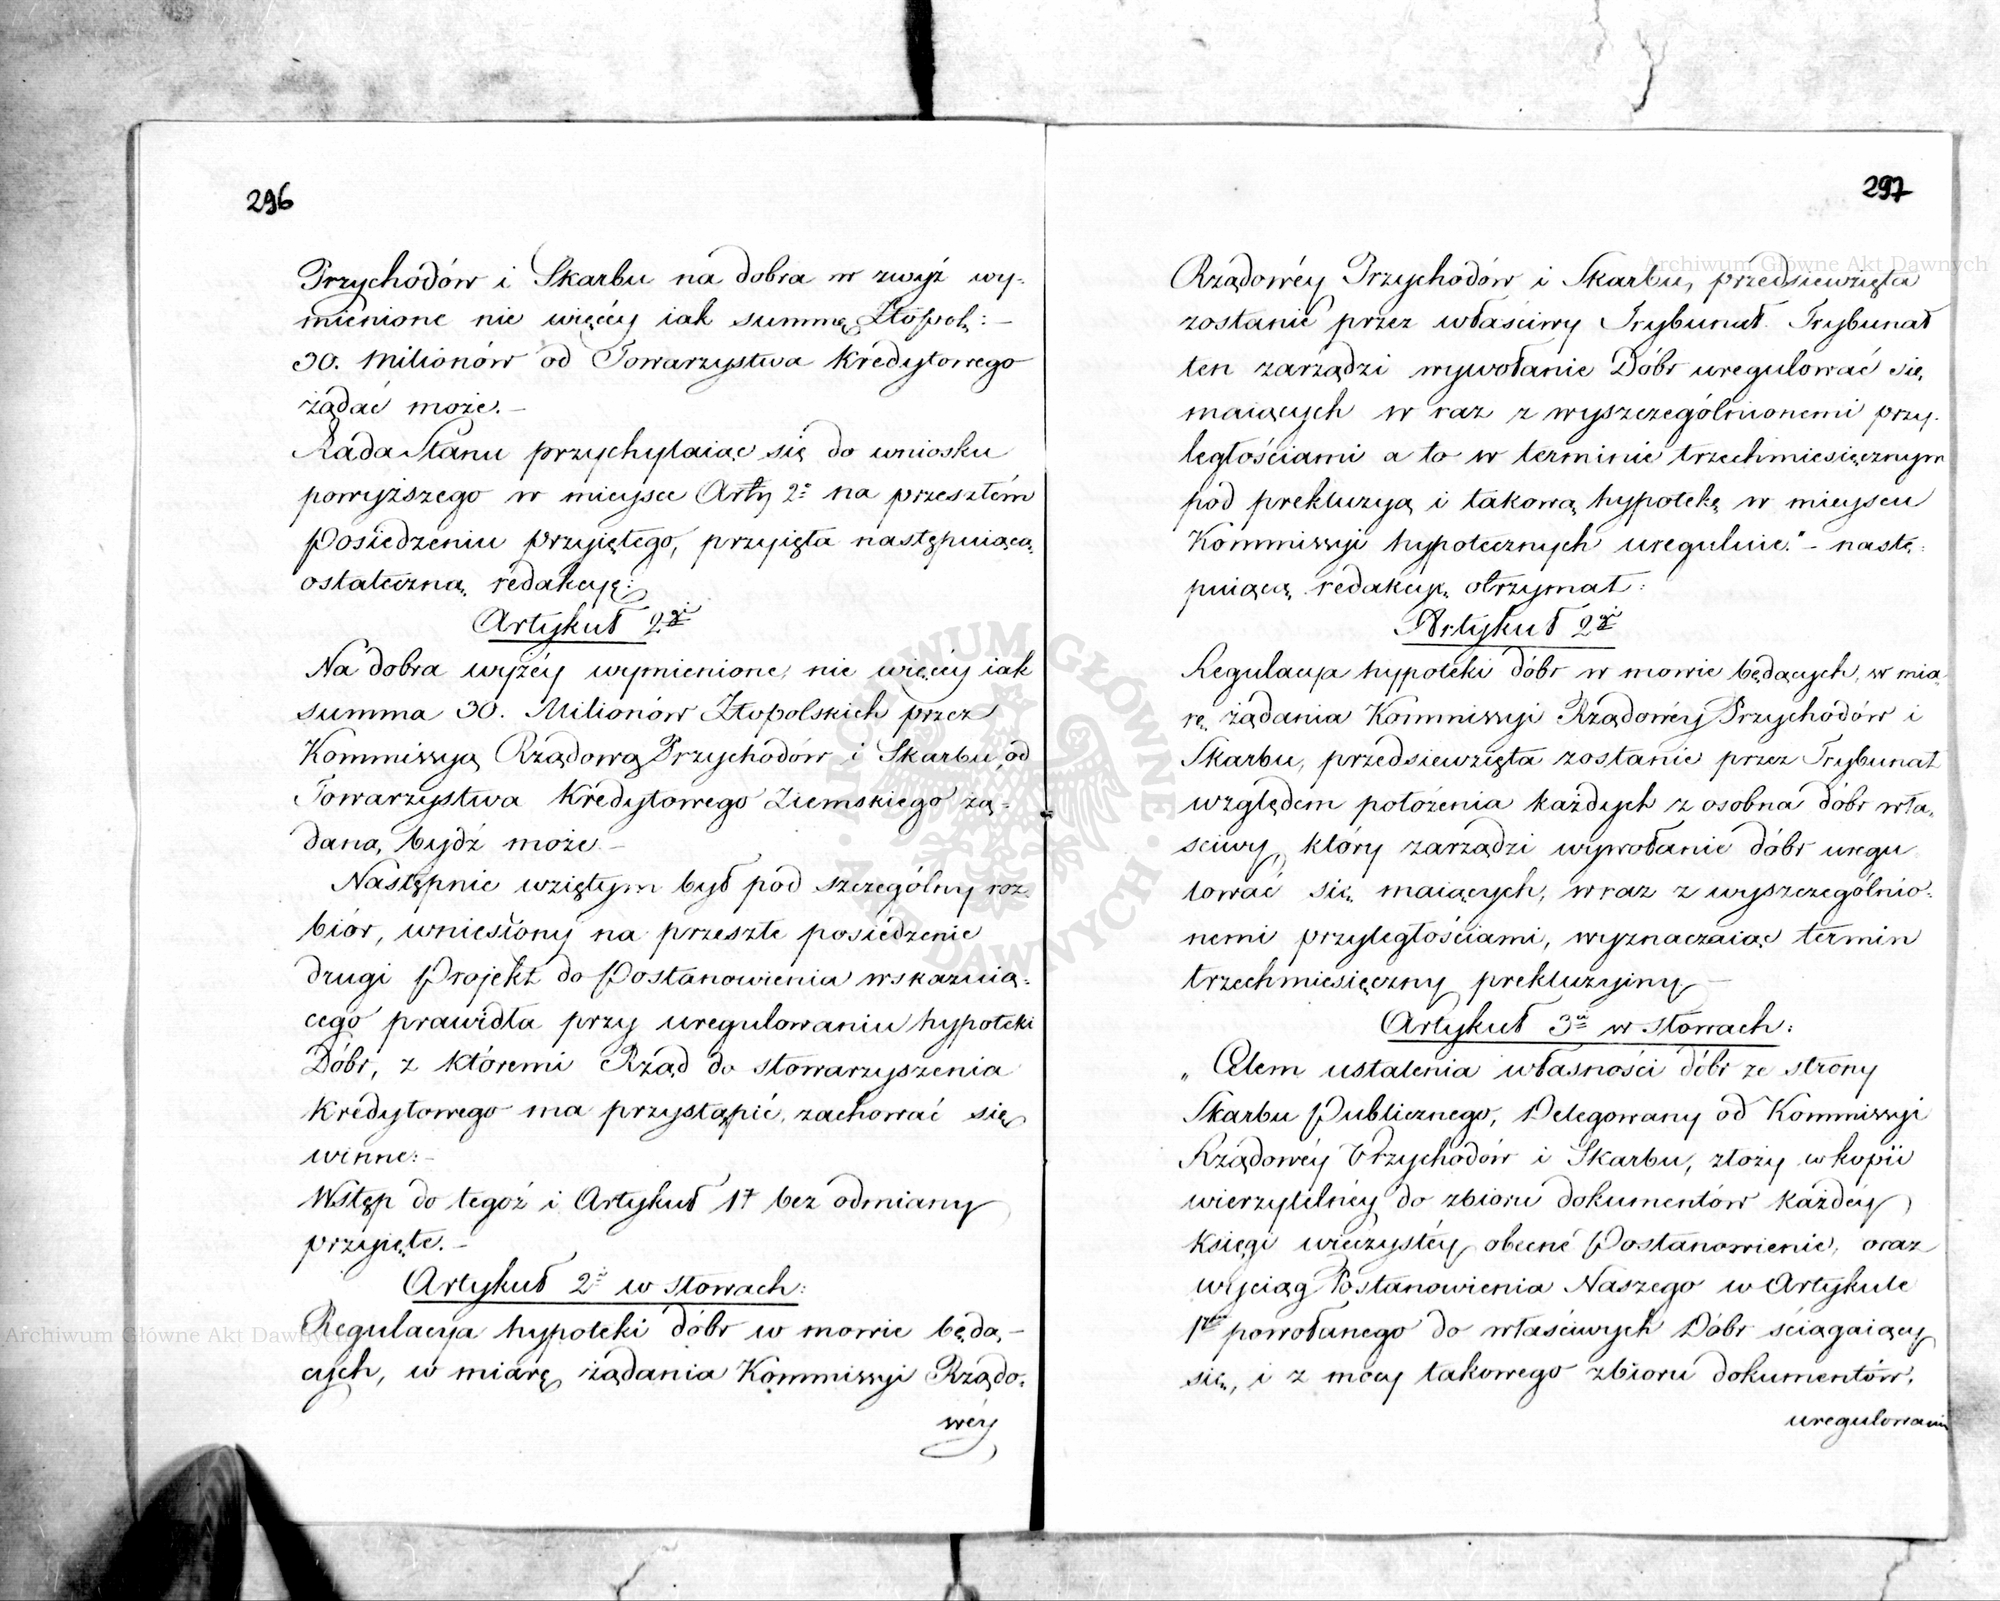 296
Przychodów i Skarbu na dobra w zwyż wy-
mienione nie więcéy iak summę Złopol:–
30. Milionów od Towarzystwa Kredytowego
żądać może.–
Rada Stanu przychylaiąc się do wniosku
powyższego w mieysce Artŷ 2º na przeszłém
Posiedzeniu przyiętego, przyięła następuiącą
ostateczną redakcyę:
Artykuł 2gi
Na dobra wyżéy wymienione, nie więcéy iak
summa 30. Milionów Złopolskich przez
Kommissyą Rządową Przychodów i Skarbu, od
Towarzystwa Kredytowego Ziemskiego żą-
daną bydź może.–
Następnie wziętym był pod szczególny roz-
biór, wniesiony na przeszłe posiedzenie
drugi Projekt do Postanowienia wskazuią-
cego prawidła przy uregulowaniu hypoteki
Dóbr, z któremi Rząd do stowarzyszenia
Kredytowego ma przystąpić, zachować się
winne:–
Wstęp do tegoż i Artykuł 1y bez odmiany
przyięte.–
Artykuł 2i w słowach:
Regulacya hypoteki dóbr w mowie będą,–
cych, w miarę żądania Kommissyi Rządo-
wéy
297
Rządowéy Przychodów i Skarbu, przedsiewzięta
zostanie przez właściwy Trybunał. Trybunał
ten zarządzi wywołanie Dóbr uregulować się
maiących w raz z wyszczególnionemi przy-
ległościami a to w terminie trzechmiesięcznym
pod prekluzyą i takową hypotekę w mieyscu
Kommissyi hypotecznych ureguluie."– nastę-
puiącą redakcyę otrzymał:
Artykuł 2gi
Regulacya hypoteki dóbr w mowie będących, w mia-
rę żądania Kommissyi Rządowéy Przychodów i
Skarbu, przedsiewzięta zostanie przez Trybunał
względem położenia każdych z osobna dóbr wła-
sciwy, który zarządzi wywołanie dóbr uregu
lować się maiących, wraz z wyszczególnio-
nemi przyległościami, wyznaczaiąc termin
trzechmiesięczny prekluzyiny–
Artykuł 3u w słowach:
„Celem ustalenia własności dóbr ze strony
Skarbu Publicznego, Delegowany od Kommissyi
Rządowéy Przychodów i Skarbu, złoży w kopii
wierzytelnéy do zbioru dokumentów każdéy
księgi wieczystéy obecné Postanowienie, oraz
wyciąg Postanowienia Naszego w Artykule
1wm powołanego do właściwych Dóbr ściągaiący
się, i z mocy takowego zbioru dokumentów,
uregulowanie
Archiwum Główne Akt Dawnych
Archiwum Główne Akt Dawnych
ARCHIWUM GŁÓWNE AKT DAWNYCH